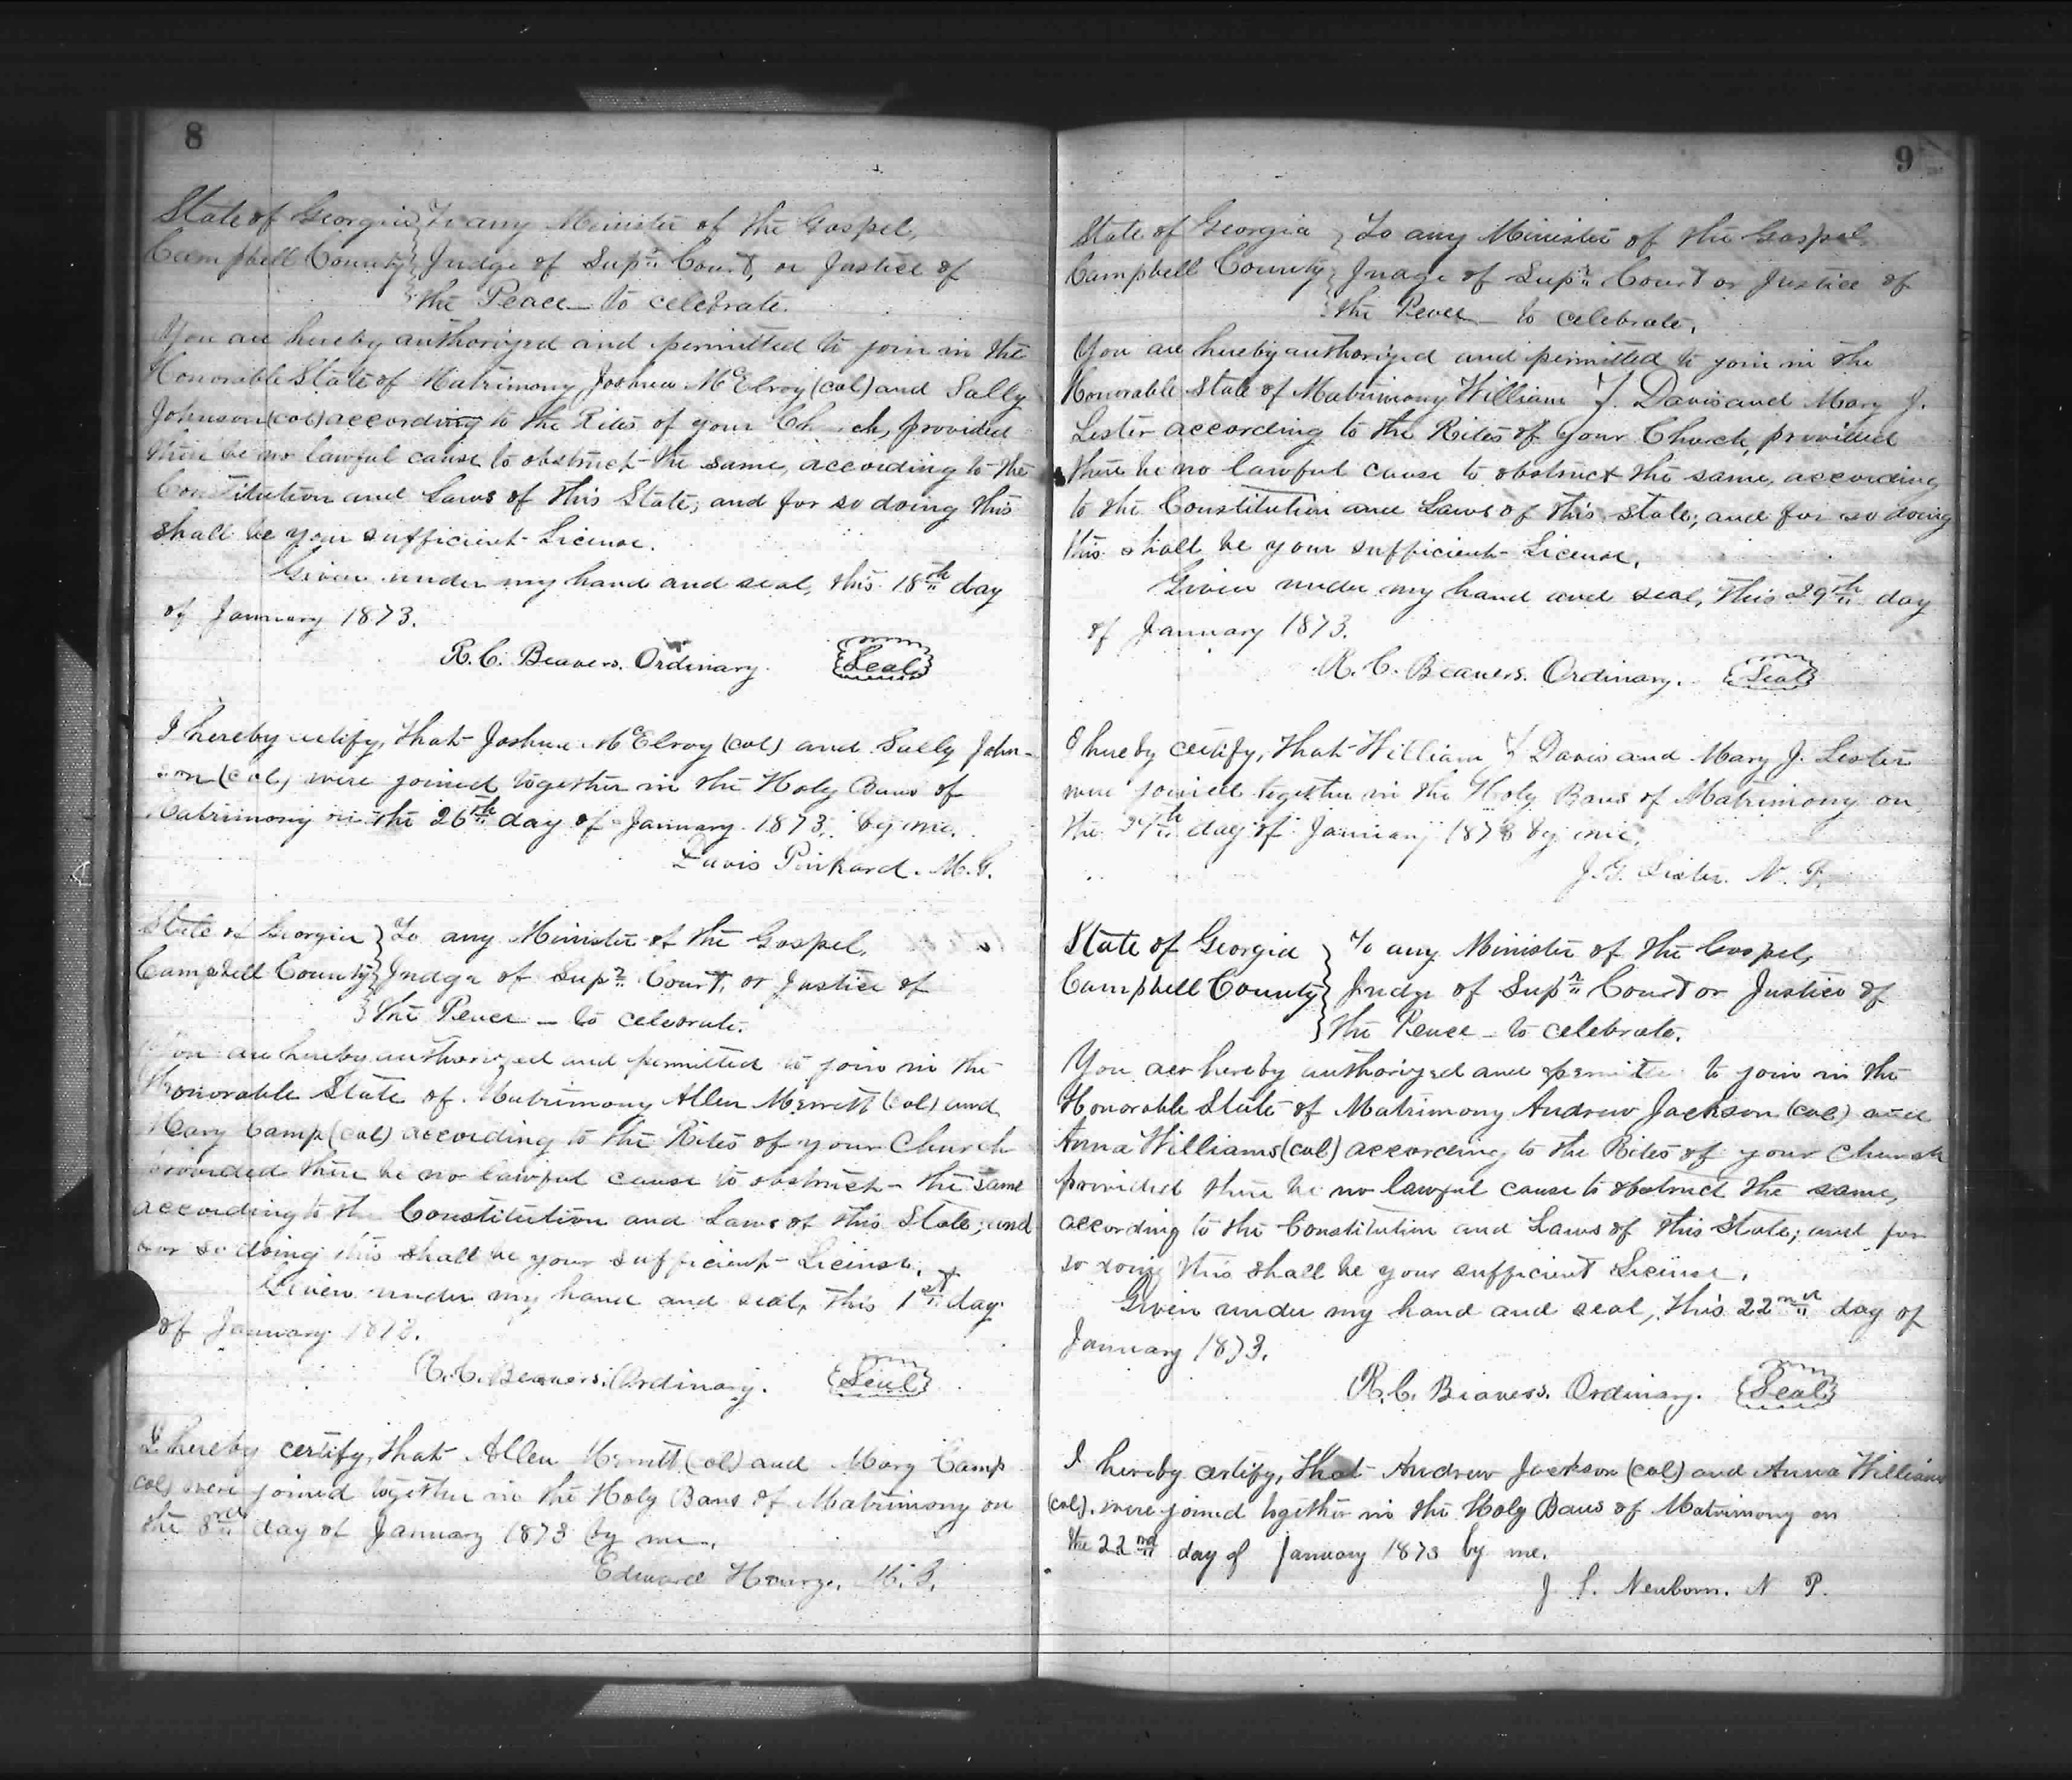 8
State of Georgia } To any Minister of the Gospel,
Campbell County } Judge of Supr. Court, or Justice of
} the Peace — to celebrate.
You are hereby authorized and permitted to join in the
Honorable State of Matrimony Joshua McElroy (col) and Sally
Johnson (col) according to the Rites of your Ch ch, provided
there be no lawful cause to obstruct the same, according to the
Constitution and Laws of this State; and for so doing this
shall be your sufficient License.
Given under my hand and seal, this 18th day
of January 1873.
R. C. Beavers. Ordinary. Seal
I hereby certify, that Joshua McElroy (col) and Sally John-
son (col) were joined together in the Holy Bans of
Matrimony on the 26th day of January 1873, by me.
Davis Pinkard. M. G.
State of Georgia } To any Minister of the Gospel,
Campbell County } Judge of Supr. Court, or Justice of
} the Peace — to celebrate.
You are hereby authorized and permitted to join in the
Honorable State of Matrimony Allen Merrett (col) and
Mary Camp (col) according to the Rites of your Church
provided there be no lawful cause to obstruct the same
according to the Constitution and Laws of this State; and
for so doing this shall be your sufficient License.
Given under my hand and seal, this 1st day
of January 1873.
R. C. Beavers. Ordinary. Seal
I hereby certify, that Allen Merrett (col) and Mary Camp
(col) were joined together in the Holy Bans of Matrimony on
the 3rd day of January 1873 by me.
Edward M. G.
9
State of Georgia } To any Minister of the Gospel,
Campbell County } Judge of Supr. Court or Justice of
} the Peace — to celebrate.
You are hereby authorized and permitted to join in the
Honorable State of Matrimony William Davis and Mary J.
Lester according to the Rites of your Church, provided
there be no lawful cause to obstruct the same, according
to the Constitution and Laws of this State; and for so doing
this shall be your sufficient License.
Given under my hand and seal, this 29th day
of January 1873.
R. C. Beavers. Ordinary. Seal
I hereby certify, that William Davis and Mary J. Lester
were joined together in the Holy Bans of Matrimony on
the 29th day of January 1873 by me.
J. G. Lester. N. P.
State of Georgia } To any Minister of the Gospel,
Campbell County } Judge of Supr. Court or Justice of
} the Peace — to celebrate.
You are hereby authorized and permitte to join in the
Honorable State of Matrimony Andrew Jackson (col) and
Anna Williams (col) according to the Rites of your Church
provided there be no lawful cause to obstruct the same,
according to the Constitution and Laws of this State; and for
so doing this shall be your sufficient License.
Given under my hand and seal, this 22nd day of
January 1873.
R. C. Beavers. Ordinary. Seal
I hereby certify, that Andrew Jackson (col) and Anna Williams
(col). were joined together in the Holy Bans of Matrimony on
the 22nd day of January 1873 by me.
J. S. Newborn. N P.